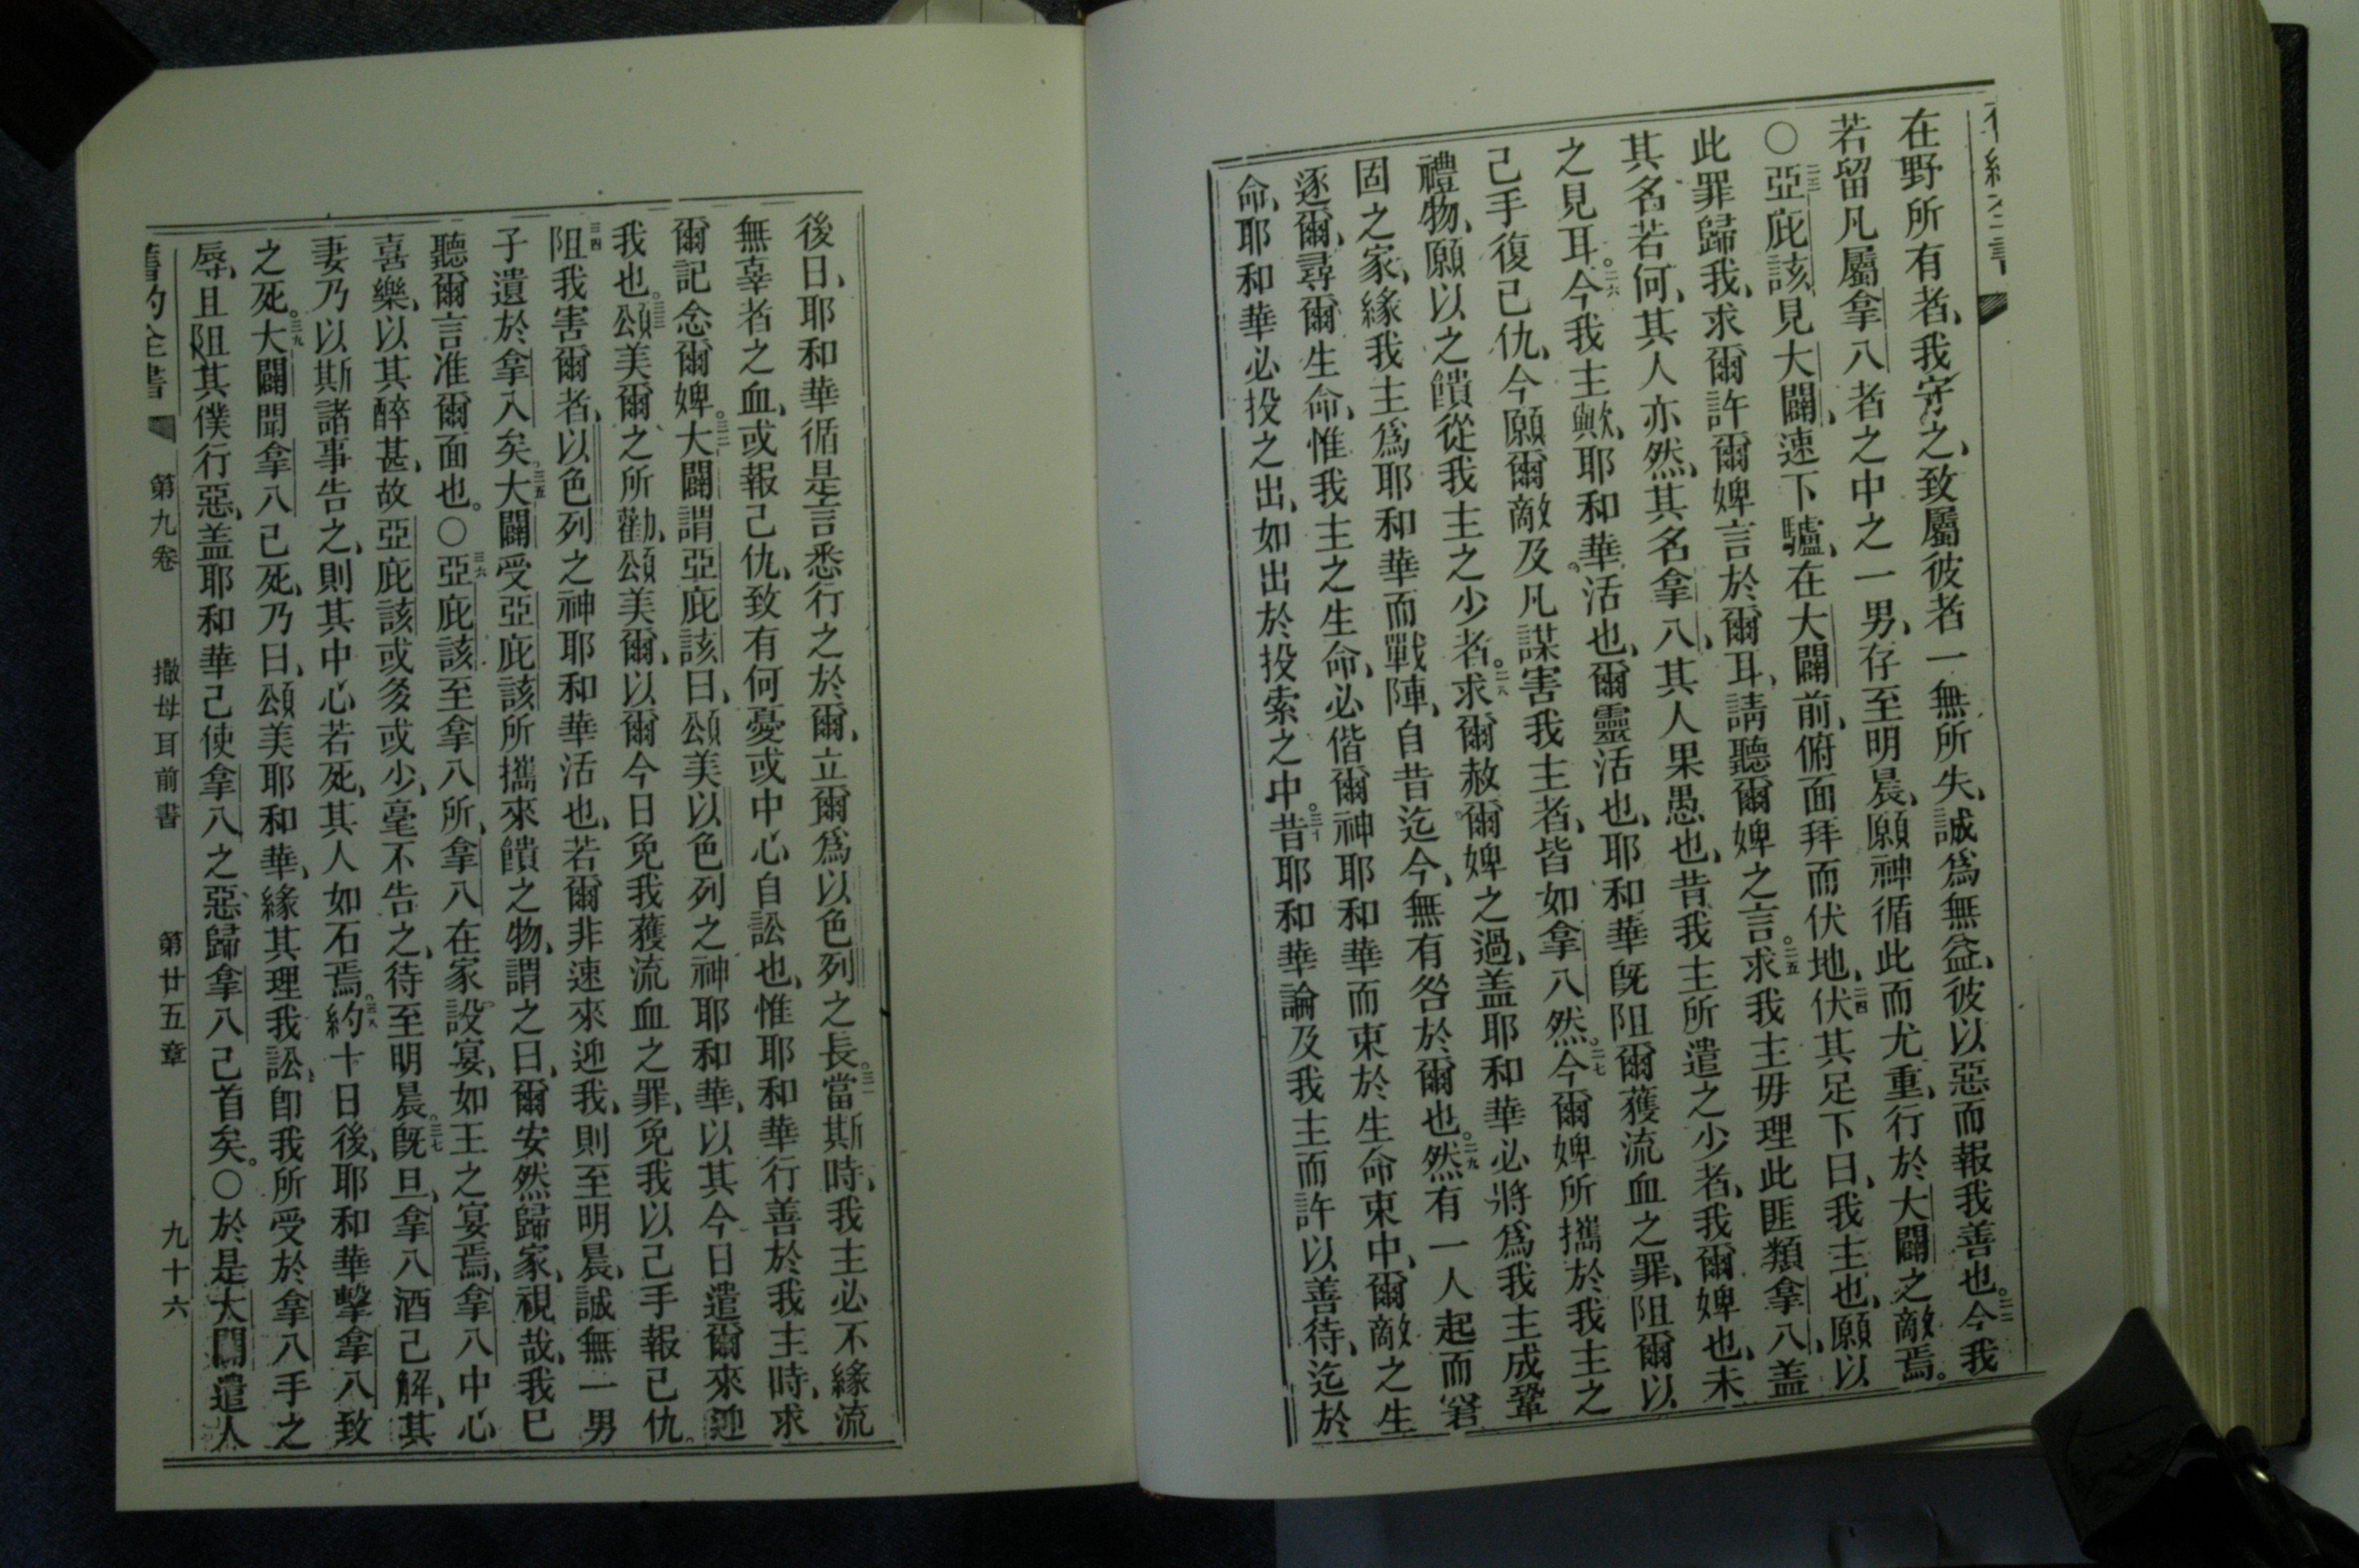 在野所有者、我守之、致屬彼者一無所失、誠爲無益、彼以惡而報我善也。二二今我
若留凡屬拿八者之中之一男、存至明晨、願神循此而尤重、行於大闢之敵焉。
〇二三亞庇該見大闢、速下驢、在大闢前、俯面拜而伏地、二四伏其足下曰、我主也、願以
此罪歸我、求爾許爾婢言於爾耳、請聽爾婢之言。二五求我主毋理此匪類拿八、盖
其名若何、其人亦然、其名拿八、其人果愚也、昔我主所遣之少者、我爾婢也、未
之見耳。二六今我主歟、耶和華活也、爾靈活也、耶和華旣阻爾獲流血之罪、阻爾以
己手復己仇、今願爾敵及凡謀害我主者、皆如拿八然。二七今爾婢所攜於我主之
禮物、願以之饋從我主之少者。二八求爾赦爾婢之過、盖耶和華必將爲我主成鞏
固之家、緣我主爲耶和華而戰陣、自昔迄今、無有咎於爾也。二九然有一人起而窘
逐爾、尋爾生命、惟我主之生命、必偕爾神耶和華而束於生命束中、爾敵之生
命、耶和華必投之出、如出於投索之中。三十昔耶和華論及我主而許以善待、迄於
後日、耶和華循是言悉行之於爾、立爾爲以色列之長。三一當斯時、我主必不緣流
無辜者之血、或報己仇、致有何憂或中心自訟也、惟耶和華行善於我主時、求
爾記念爾婢。三二大闢謂亞庇該曰、頌美以色列之神耶和華、以其今日遣爾來迎
我也。三三頌美爾之所勸、頌美爾、以爾今日免我獲流血之罪、免我以己手報己仇。
三四阻我害爾者、以色列之神耶和華活也、若爾非速來迎我、則至明晨、誠無一男
子遺於拿八矣。三五大闢受亞庇該所攜來饋之物、謂之曰、爾安然歸家、視哉、我已
聽爾言准爾面也。〇三六亞庇該至拿八所、拿八在家設宴、如王之宴焉、拿八中心
喜樂、以其醉甚、故亞庇該或多或少、毫不告之、待至明晨。三七旣旦、拿八酒已解、其
妻乃以斯諸事告之、則其中心若死、其人如石焉。三八約十日後、耶和華擊拿八致
之死。三九大闢聞拿八已死、乃曰、頌美耶和華、緣其理我訟、卽我所受於拿八手之
辱、且阻其僕行惡、盖耶和華已使拿八之惡歸拿八己首矣。〇於是大闢遣人
舊約全書 第九卷 撒母耳前書 第廿五章 九十六